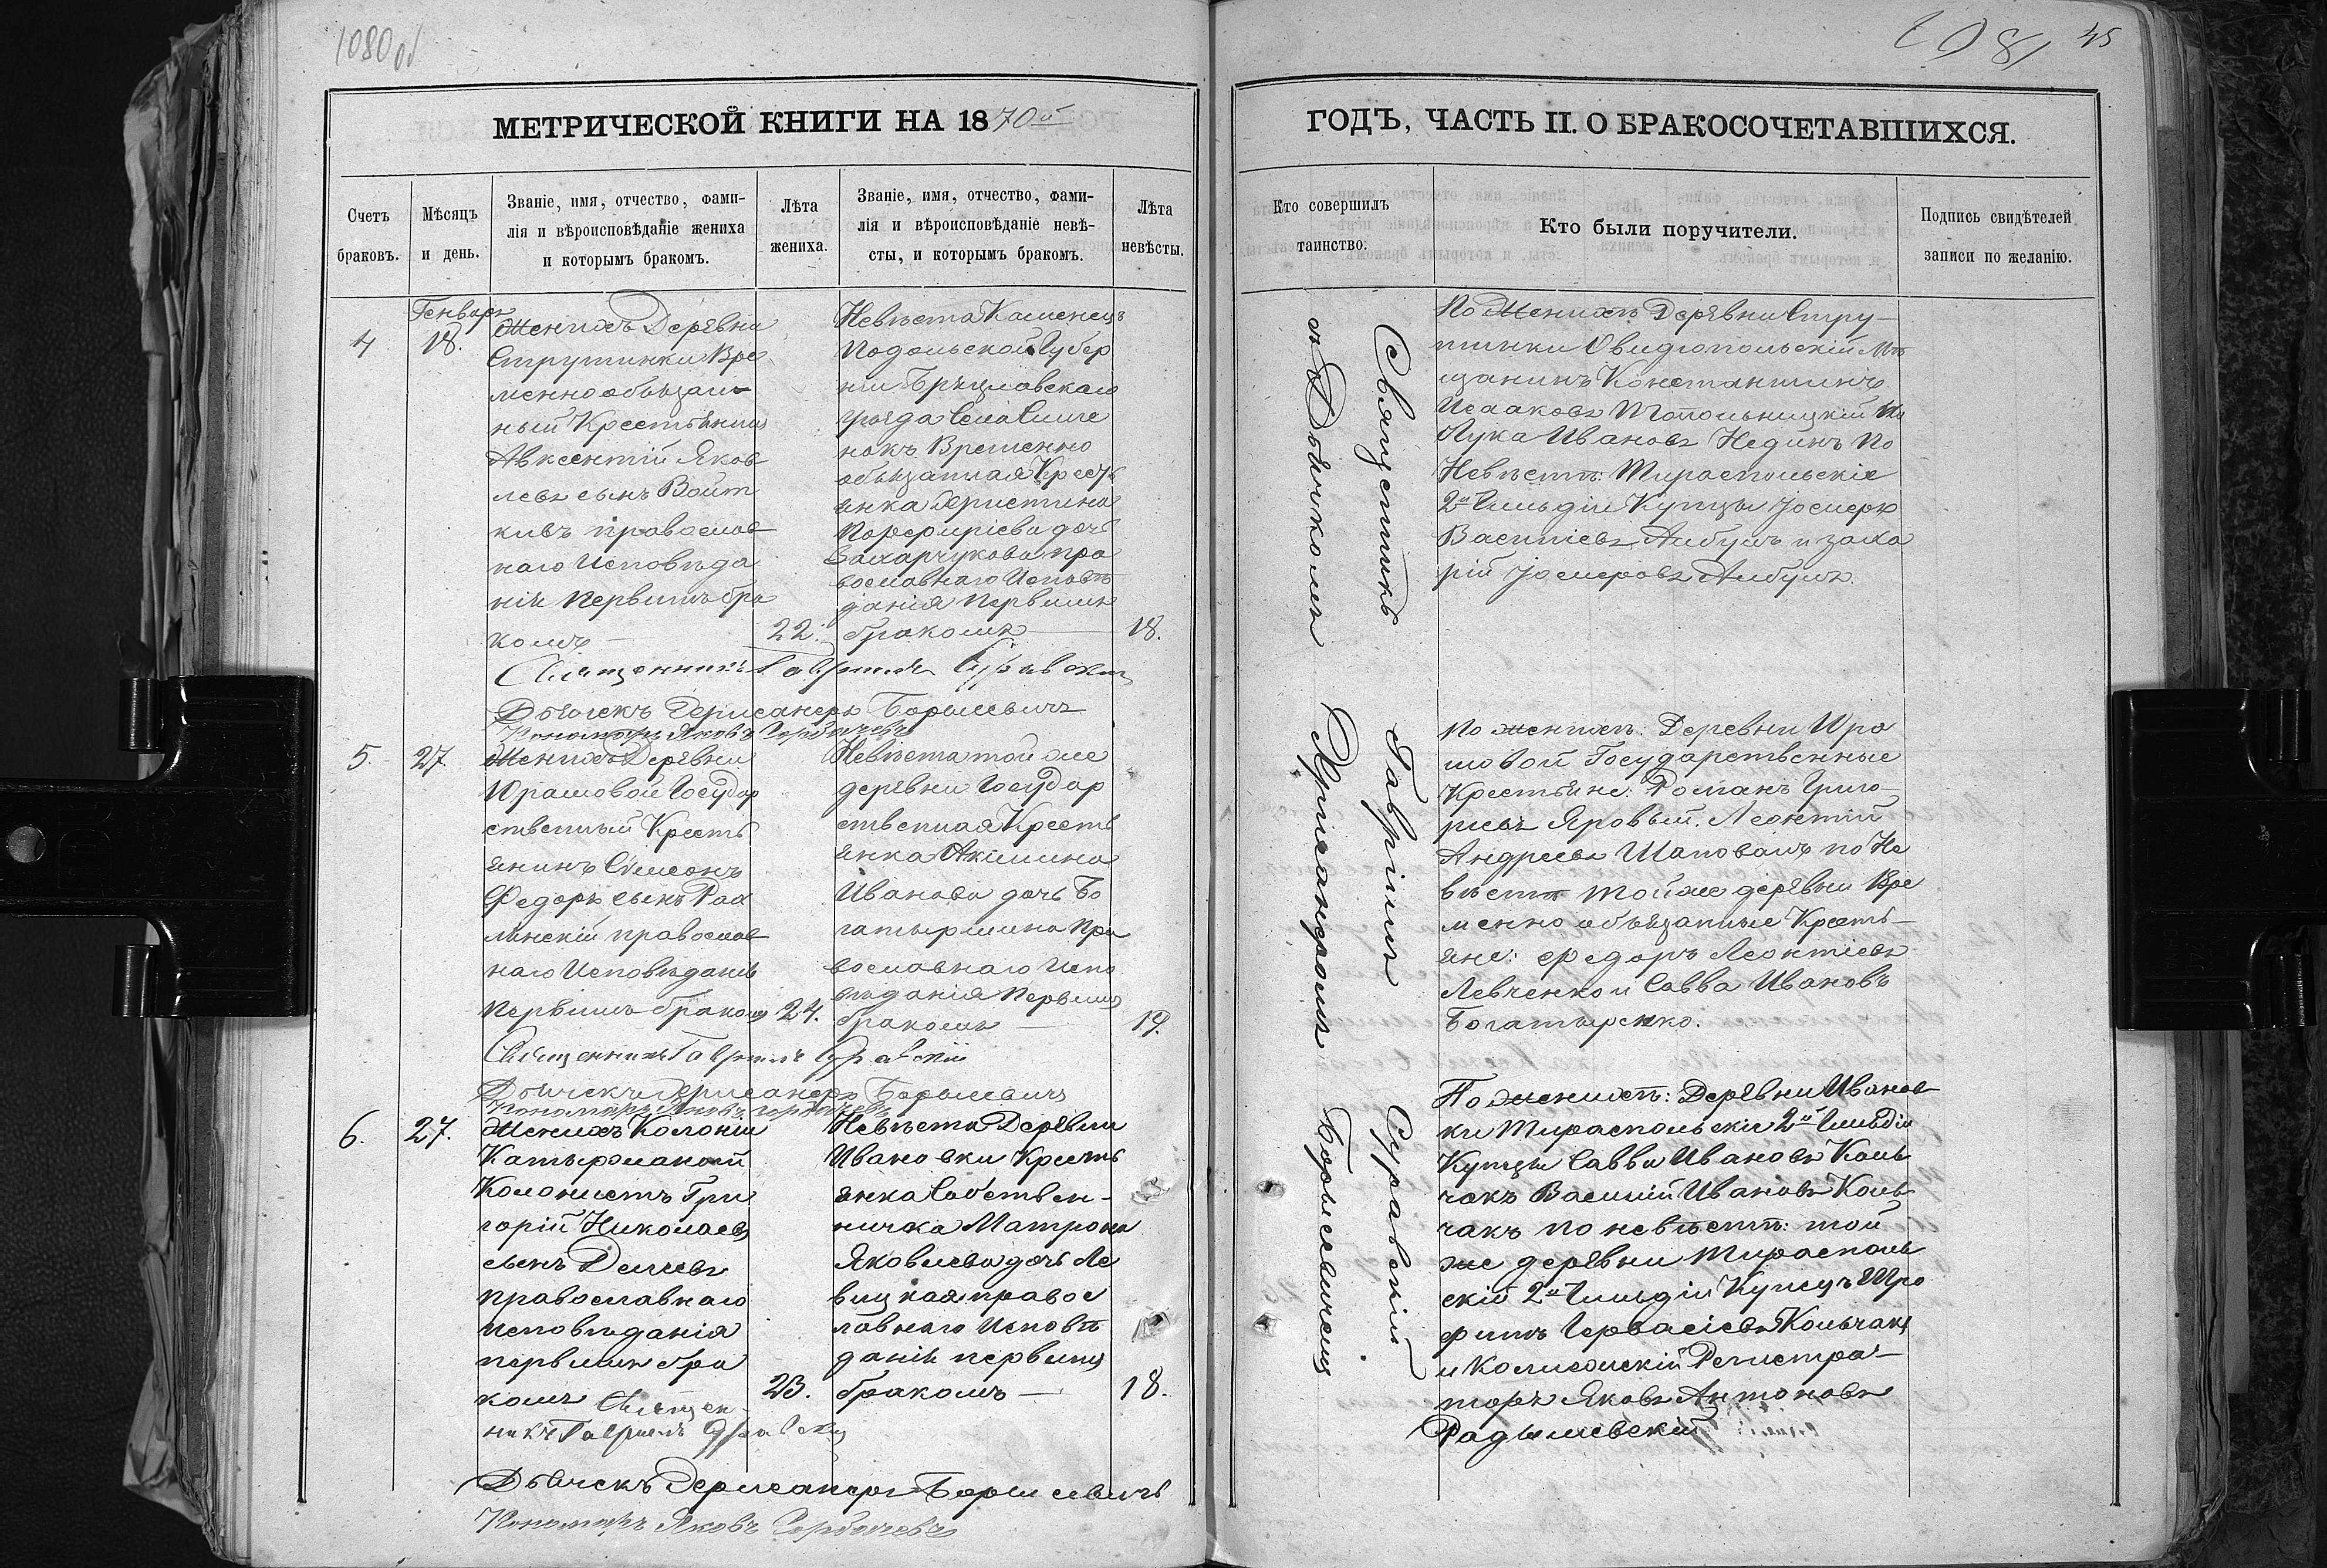 1080 об
1081 45
МЕТРИЧЕСКОЙ КНИГИ НА 1870й
ГОДЪ, ЧАСТЬ II. О БРАКОСОЧЕТАВШИХСЯ.
Счетъ браковъ.
Мѣсяцъ и день.
Званіе, имя, отчество, фами-
лія и вѣроисповѣданіе жениха
и которымъ бракомъ.
Лѣта
жениха.
Званіе, имя, отчество, фами-
лія и вѣроисповѣданіе невѣ-
сты, и которымъ бракомъ.
Лѣта
невѣсты.
Кто совершилъ
таинство.
Кто были поручители.
Подпись свидѣтелей
записи по желанію.
4
Генварь
18.
Женихъ Деревни
Струтинки Вре
менно обязан
ный Крестьянинъ
Авксентій Яков
левъ сынъ Войт
ковъ православ
наго Исповѣда
нія Первымъ бра
комъ
22.
Невѣста Каменецъ
Подольской Губер
ніи Брацлавскаго
уѣзда Села
Временно
обязанная Кресть
янка Христина
Порфиріева дочь
Захарчукова пра
вославнаго Исповѣ
данія Первымъ
бракомъ
18.
Священникъ Гавріилъ Суравскій
Дьячекъ Хрисанфъ Борисевичъ
Пономарь Яковъ Горбачевъ
5.
27.
Женихъ Деревни
Юрашовой Государ
ственный Кресть
янинъ Симеонъ
Федоръ сынъ
православ
наго Исповѣданія
Первымъ бракомъ
24.
Невѣста той же
деревни Государ
ственная Кресть
янка Акилина
Иванова дочь Бо
гатыршина Пра
вославнаго Испо
вѣданія Первымъ
бракомъ
19.
Священникъ Гавріилъ Суравскій
Дьячекъ Хрисанфъ Борисевичъ
Пономарь Яковъ Горбачевъ
6.
27.
Женихъ Колоніи
Катыржанкой
Колонистъ Гри
горій Николаевъ
сынъ Делиевъ
православнаго
исповѣданія
первымъ бра
комъ
23.
Невѣста Деревни
Ивановки Кресть
янка Собствен-
ничка Матрона
Яковлева дочь Ле
вицкая правос
лавнаго Исповѣ
данія первымъ
бракомъ
18.
Священ
никъ Гавріилъ Суравскій
Дьячекъ Хрисанфъ Борисевичъ
Пономарь Яковъ Горбачевъ
Священникъ Гавріилъ Суравскій
съ Дьячкомъ Хрисанфомъ Борисевичемъ
По Женихѣ Деревни Стру-
тинки Овидіопольскій Мѣ
щанинъ Константинъ
Исааковъ Топольницкій и
Лука Ивановъ Нединъ По
Невѣстѣ: Тираспольскіе
2й Гильдіи Купцы Іосифъ
Василіевъ Албулъ и Заха
рій Іосифовъ Албулъ.
По женихѣ: Деревни Юра
шовой Государственные
Крестьяне: Романъ Григо-
риевъ Яровый. Леонтій
Андреевъ Шаповалъ по Не
вѣстѣ той же деревни Вре
менно обязанные Кресть-
яне: Федоръ Леонтіевъ
Левченко и Савва Ивановъ
Богатыренко.
По женихѣ: Деревни Иванов
ки Тираспольскіе 2й Гильдіи
Купцы Савва Ивановъ Коль
чакъ Василій Ивановъ Коль
чакъ по невѣстѣ: той
же деревни Тирасполь
скій 2й Гильдіи Купецъ Тро
фимъ Гервасіевъ Кольчакъ
и Колижскій Регистра-
торъ Яковъ Антоновъ
Радышевскій